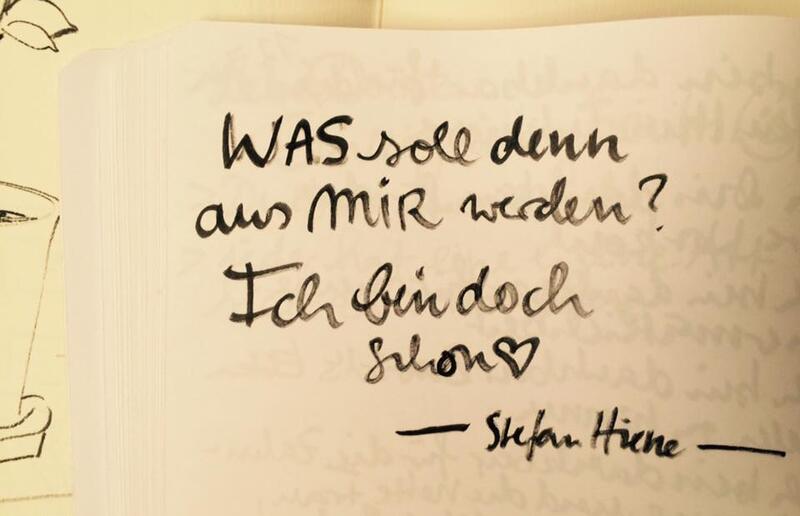 WAS soll denn
aus MiR werden?
Ich bin doch
schon♡
— Stefan Hiene —